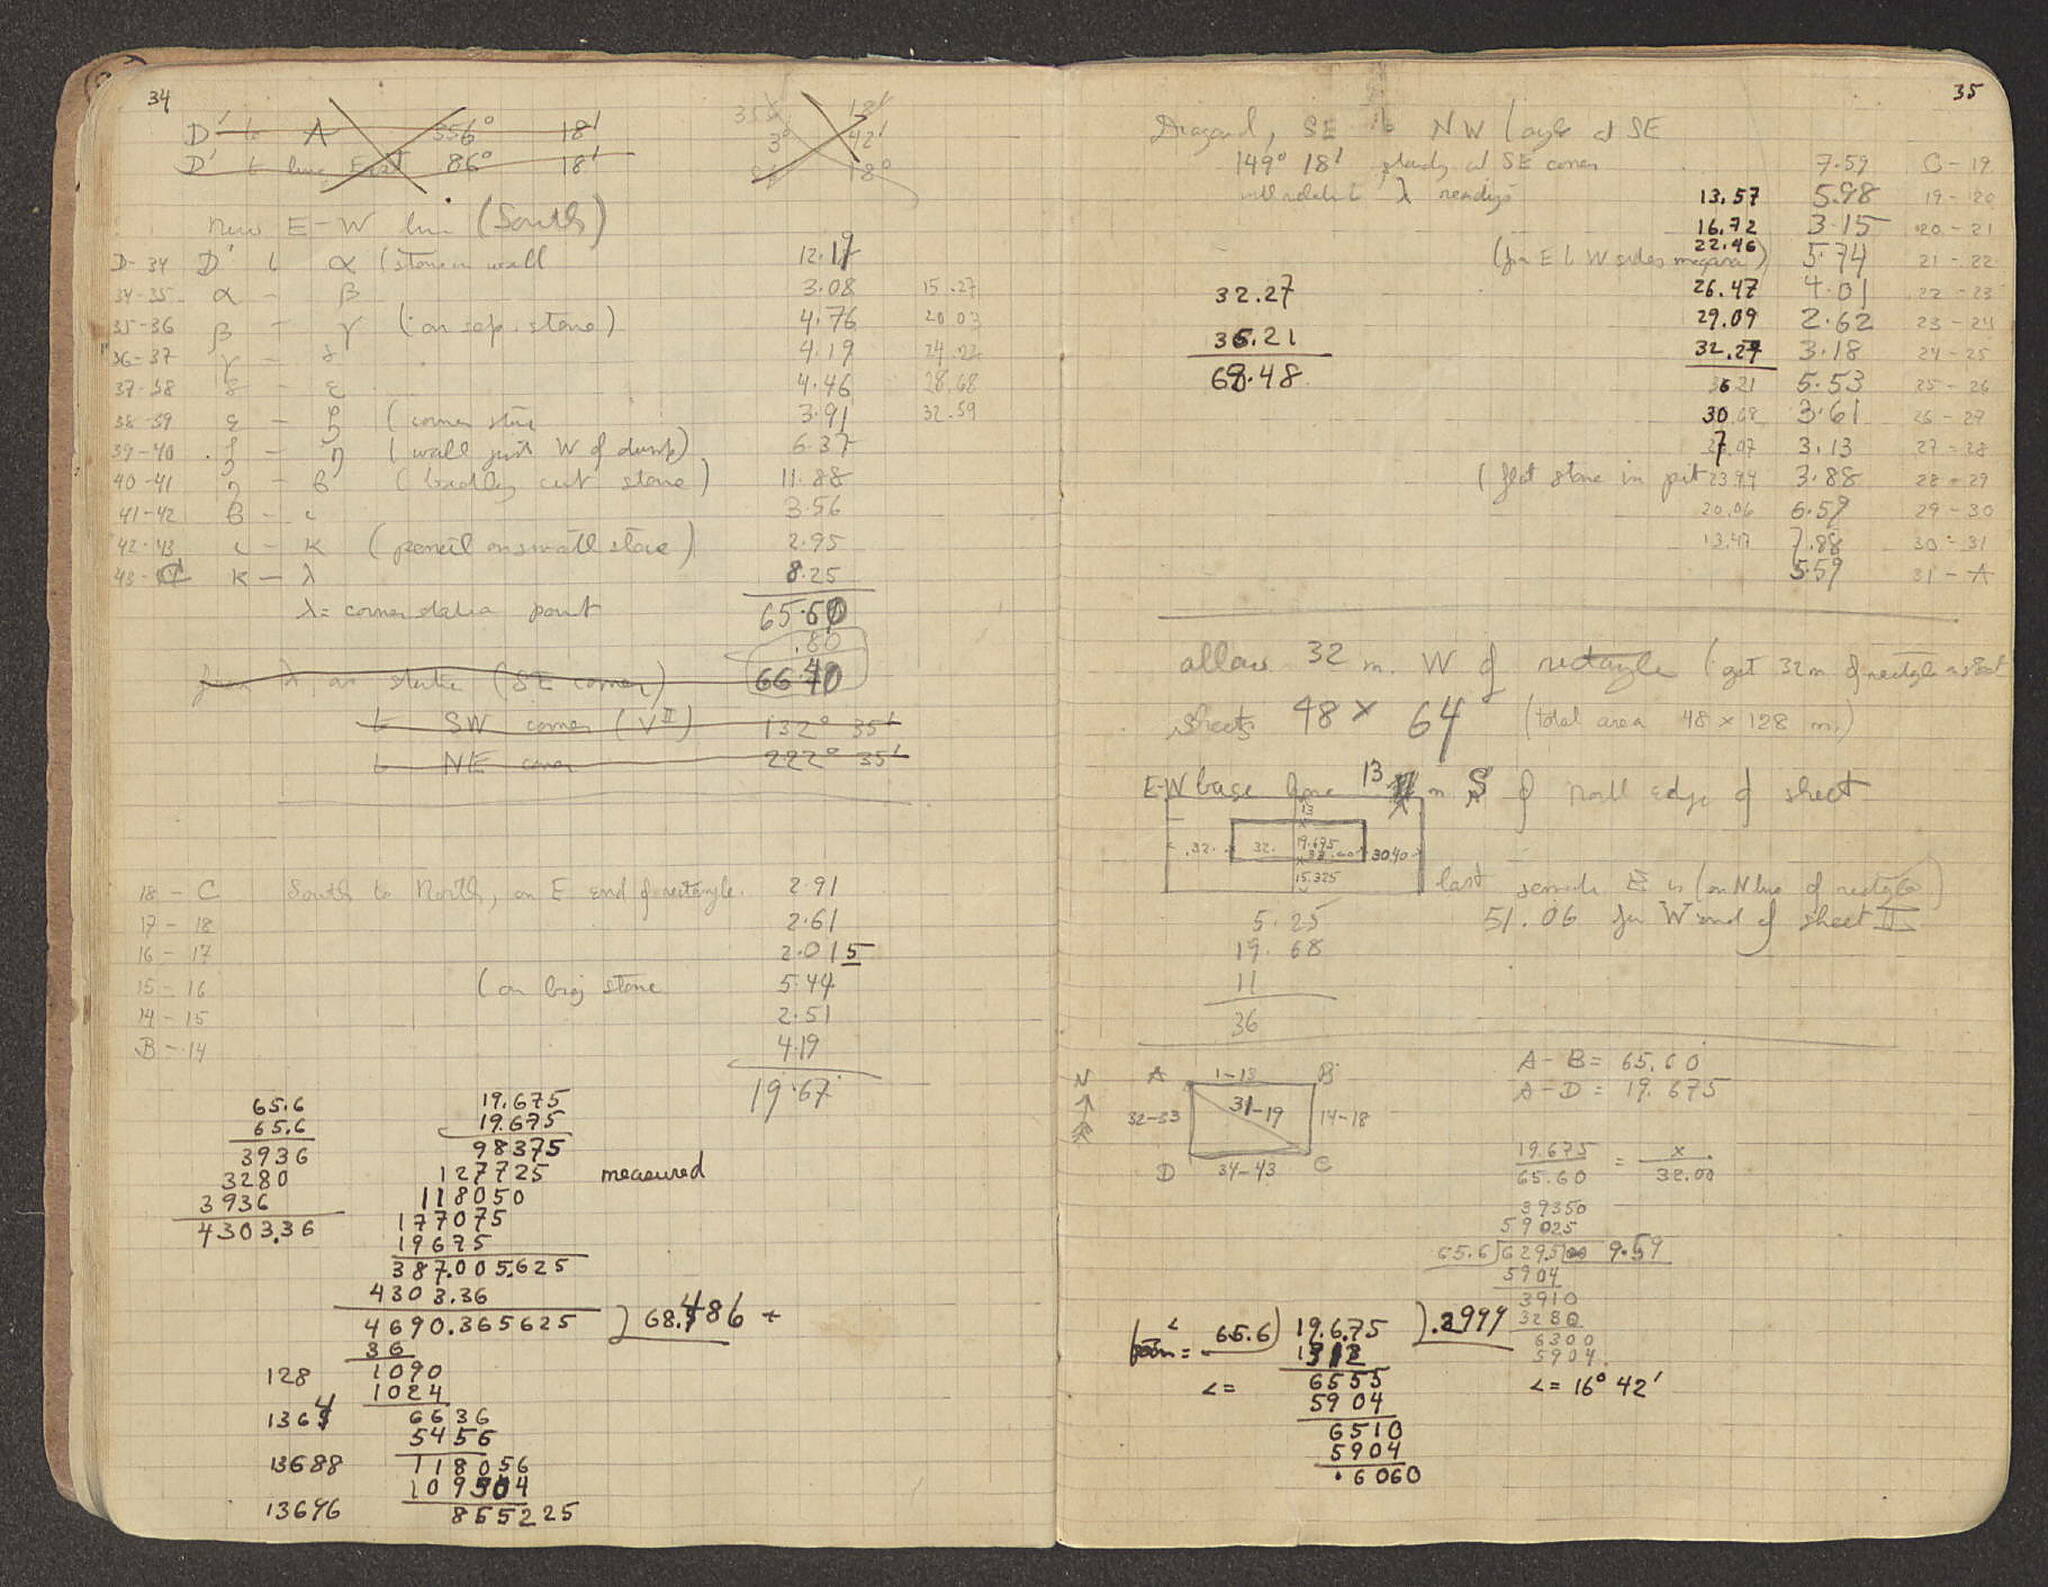 34
D' to A 356° 18'
D' to line East 86° 18'
18'
3° 42'
18°
New E-W line (South)
D-34 D' to α (stone in wall 12.19
34-35 α - β 3.08 15.27
35-36 β - γ (on sep. stone) 4.76 20.03
36-37 γ - δ 4.19 24.22
37-38 δ - ε 4.46 28.68
38-39 ε - ζ (corner stone 3.91 32.59
39-40 ζ - η (wall just W of dump) 6.37
40-41 η - θ (badly cut stone) 11.88
41-42 θ - ι 3.56
42-43 ι - κ (pencil on small stone) 2.95
43-C κ - λ 8.25
λ = corner station point 65.60
.80
66.40
from λ as station (SE corner)
to SW corner (VII) 132° 35'
to NE corner 222° 35'
18 - C South to North, on E end of rectangle. 2.91
17 - 18 2.61
16 - 17 2.015
15 - 16 (on big stone 5.44
14 - 15 2.51
B - 14 4.19
19.67
65.6
65.6
3936
3280
3936
4303.36
19.675
19.675
98375
127725 measured
118050
177075
19675
387.005.625
4303.36
4690.365625 ) 68.486 +
36
128 1090
1024
1364 6636
5456
13688 118056
109504
13696 855225
35
Diagonal, SE to NW (angle at SE
149° 18' standing at SE corner 7.59 C - 19
λ readings 13.57 5.98 19 - 20
16.72 3.15 20 - 21
(for E & W sides megara) 22.46 5.74 21 - 22
26.47 4.01 22 - 23
29.09 2.62 23 - 24
32.27 3.18 24 - 25
36.21 5.53 25 - 26
30.68 3.61 26 - 27
27.07 3.13 27 - 28
(flat stone in pit 23.94 3.88 28 - 29
20.06 6.59 29 - 30
13.47 7.88 30 - 31
5.59 31 - A
32.27
36.21
68.48
allow 32 m. W of rectangle (get 32 m of rectangle on sheet
sheets 48 x 64 (total area 48 x 128 m.)
E-W base line 13 m S of north edge of sheet
13
32. 32. 19.675 33.60 30.40
15.325
last E is (on N line of rectangle)
51.06 for W end of sheet II
5.25
19.68
11
36
N
A 1-13 B
32-33 31-19 14-18
D 34-43 C
A - B = 65.60
A - D = 19.675
19.675 / 65.60 = x / 32.00
39350
59025
65.6 ) 629.500 9.59
5904
3910
3280
6300
5904
∠
= 65.6 ) 19.6.75 ) .2999
1312
∠ = 6555
5904
6510
5904
.6060
∠ = 16° 42'